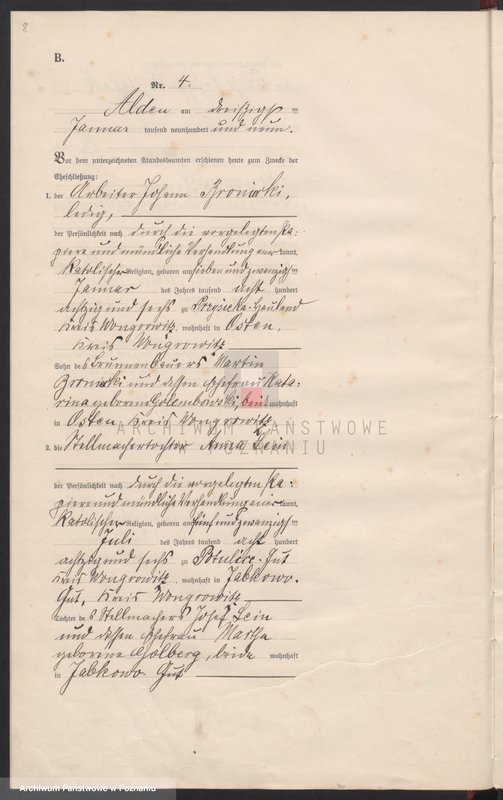 8
B.
Nr. 4.
Alden am dreißigsten
Januar tausend neunhundert und neun.
Vor dem unterzeichneten Standesbeamten erschienen heute zum Zwecke der
Eheschließung:
1. der Arbeiter Johann Broniecki,
ledig,
der Persönlichkeit nach durch die vorgelegten Pa-
piere und mündliche Verhandlung anerkannt,
katolischer Religion, geboren am sieben und zwanzigsten
Januar des Jahres tausend acht hundert
achtzig und sechs zu Hauland
Kreis Wongrowitz, wohnhaft in Osten,
Kreis Wongrowitz
Sohn des Brunnenbauers Martin
und dessen Ehefrau Kata-
rina geborene Golembowski, beide wohnhaft
in Osten, Kreis Wongrowitz
2. die Stellmachertochter Anna Lein
der Persönlichkeit nach durch die vorgelegten Pa-
piere und mündliche Verhandlung anerkannt,
katolischer Religion, geboren am fünf und zwanzigsten
Juli des Jahres tausend acht hundert
achtzig und sechs zu Potulice-Gut
Kreis Wongrowitz, wohnhaft in Jabkowo-
Gut, Kreis Wongrowitz
Tochter des Stellmachers Josef Lein
und dessen Ehefrau Martha
geborene beide wohnhaft
in Jabkowo Gut
ARCHIWUM PAŃSTWOWE
W POZNANIU
Archiwum Państwowe w Poznaniu